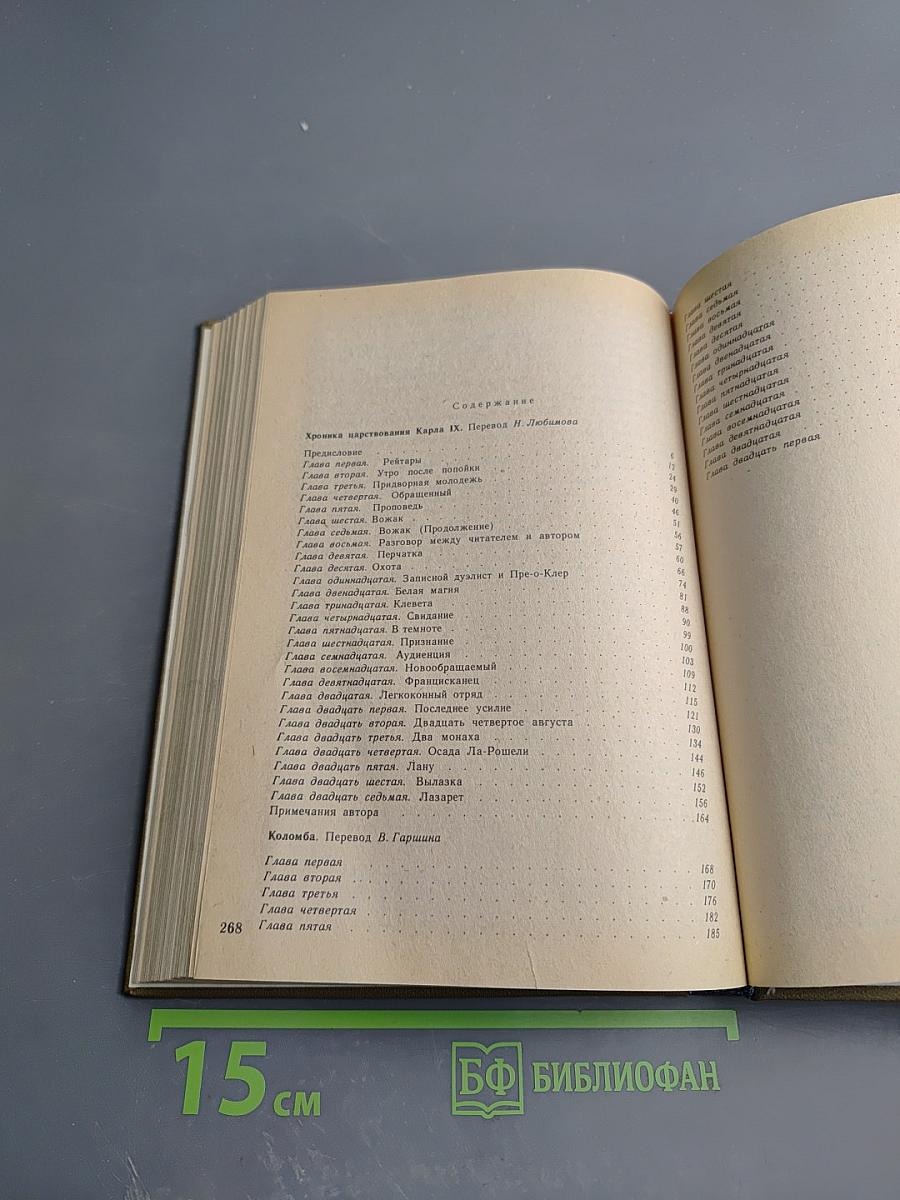 Содержание
Хроника царствования Карла IX. Перевод Н. Любимова
Предисловие 6
Глава первая. Рейтары 12
Глава вторая. Утро после попойки 24
Глава третья. Придворная молодежь 29
Глава четвертая. Обращенный 40
Глава пятая. Проповедь 46
Глава шестая. Вожак 51
Глава седьмая. Вожак (Продолжение) 56
Глава восьмая. Разговор между читателем и автором 57
Глава девятая. Перчатка 60
Глава десятая. Охота 66
Глава одиннадцатая. Записной дуэлист и Пре-о-Клер 74
Глава двенадцатая. Белая магия 81
Глава тринадцатая. Клевета 88
Глава четырнадцатая. Свидание 90
Глава пятнадцатая. В темноте 99
Глава шестнадцатая. Признание 100
Глава семнадцатая. Аудиенция 103
Глава восемнадцатая. Новообращаемый 109
Глава девятнадцатая. Францисканец 112
Глава двадцатая. Легкоконный отряд 115
Глава двадцать первая. Последнее усилие 121
Глава двадцать вторая. Двадцать четвертое августа 130
Глава двадцать третья. Два монаха 134
Глава двадцать четвертая. Осада Ла-Рошели 144
Глава двадцать пятая. Лану 146
Глава двадцать шестая. Вылазка 152
Глава двадцать седьмая. Лазарет 156
Примечания автора 164
Коломба. Перевод В. Гаршина
Глава первая 168
Глава вторая 170
Глава третья 176
Глава четвертая 182
Глава пятая 185
268
Глава шестая
Глава седьмая
Глава восьмая
Глава девятая
Глава десятая
Глава одиннадцатая
Глава двенадцатая
Глава тринадцатая
Глава четырнадцатая
Глава пятнадцатая
Глава шестнадцатая
Глава семнадцатая
Глава восемнадцатая
Глава девятнадцатая
Глава двадцатая
Глава двадцать первая
15 см
БФ БИБЛИОФАН